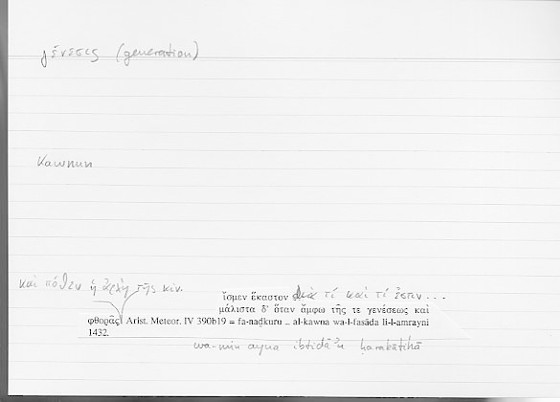 γένεσις (generation)
Kawnun
καὶ πόθεν ἡ ἀρχὴ τῆς κιν.
ἴσμεν ἕκαστον διὰ τί καὶ τί ἐστιν...
μάλιστα δ' ὅταν ἄμφω τῆς τε γενέσεως καὶ
φθορᾶς Arist. Meteor. IV 390b19 = fa-naḏkuru .. al-kawna wa-l-fasāda li-l-amrayni
1432.
wa-min ayna ibtidāʾu ḥarakatihā